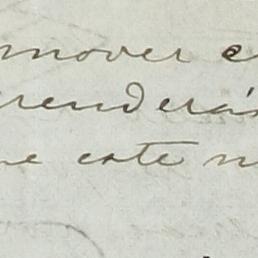 mover e
renderás
ue este n